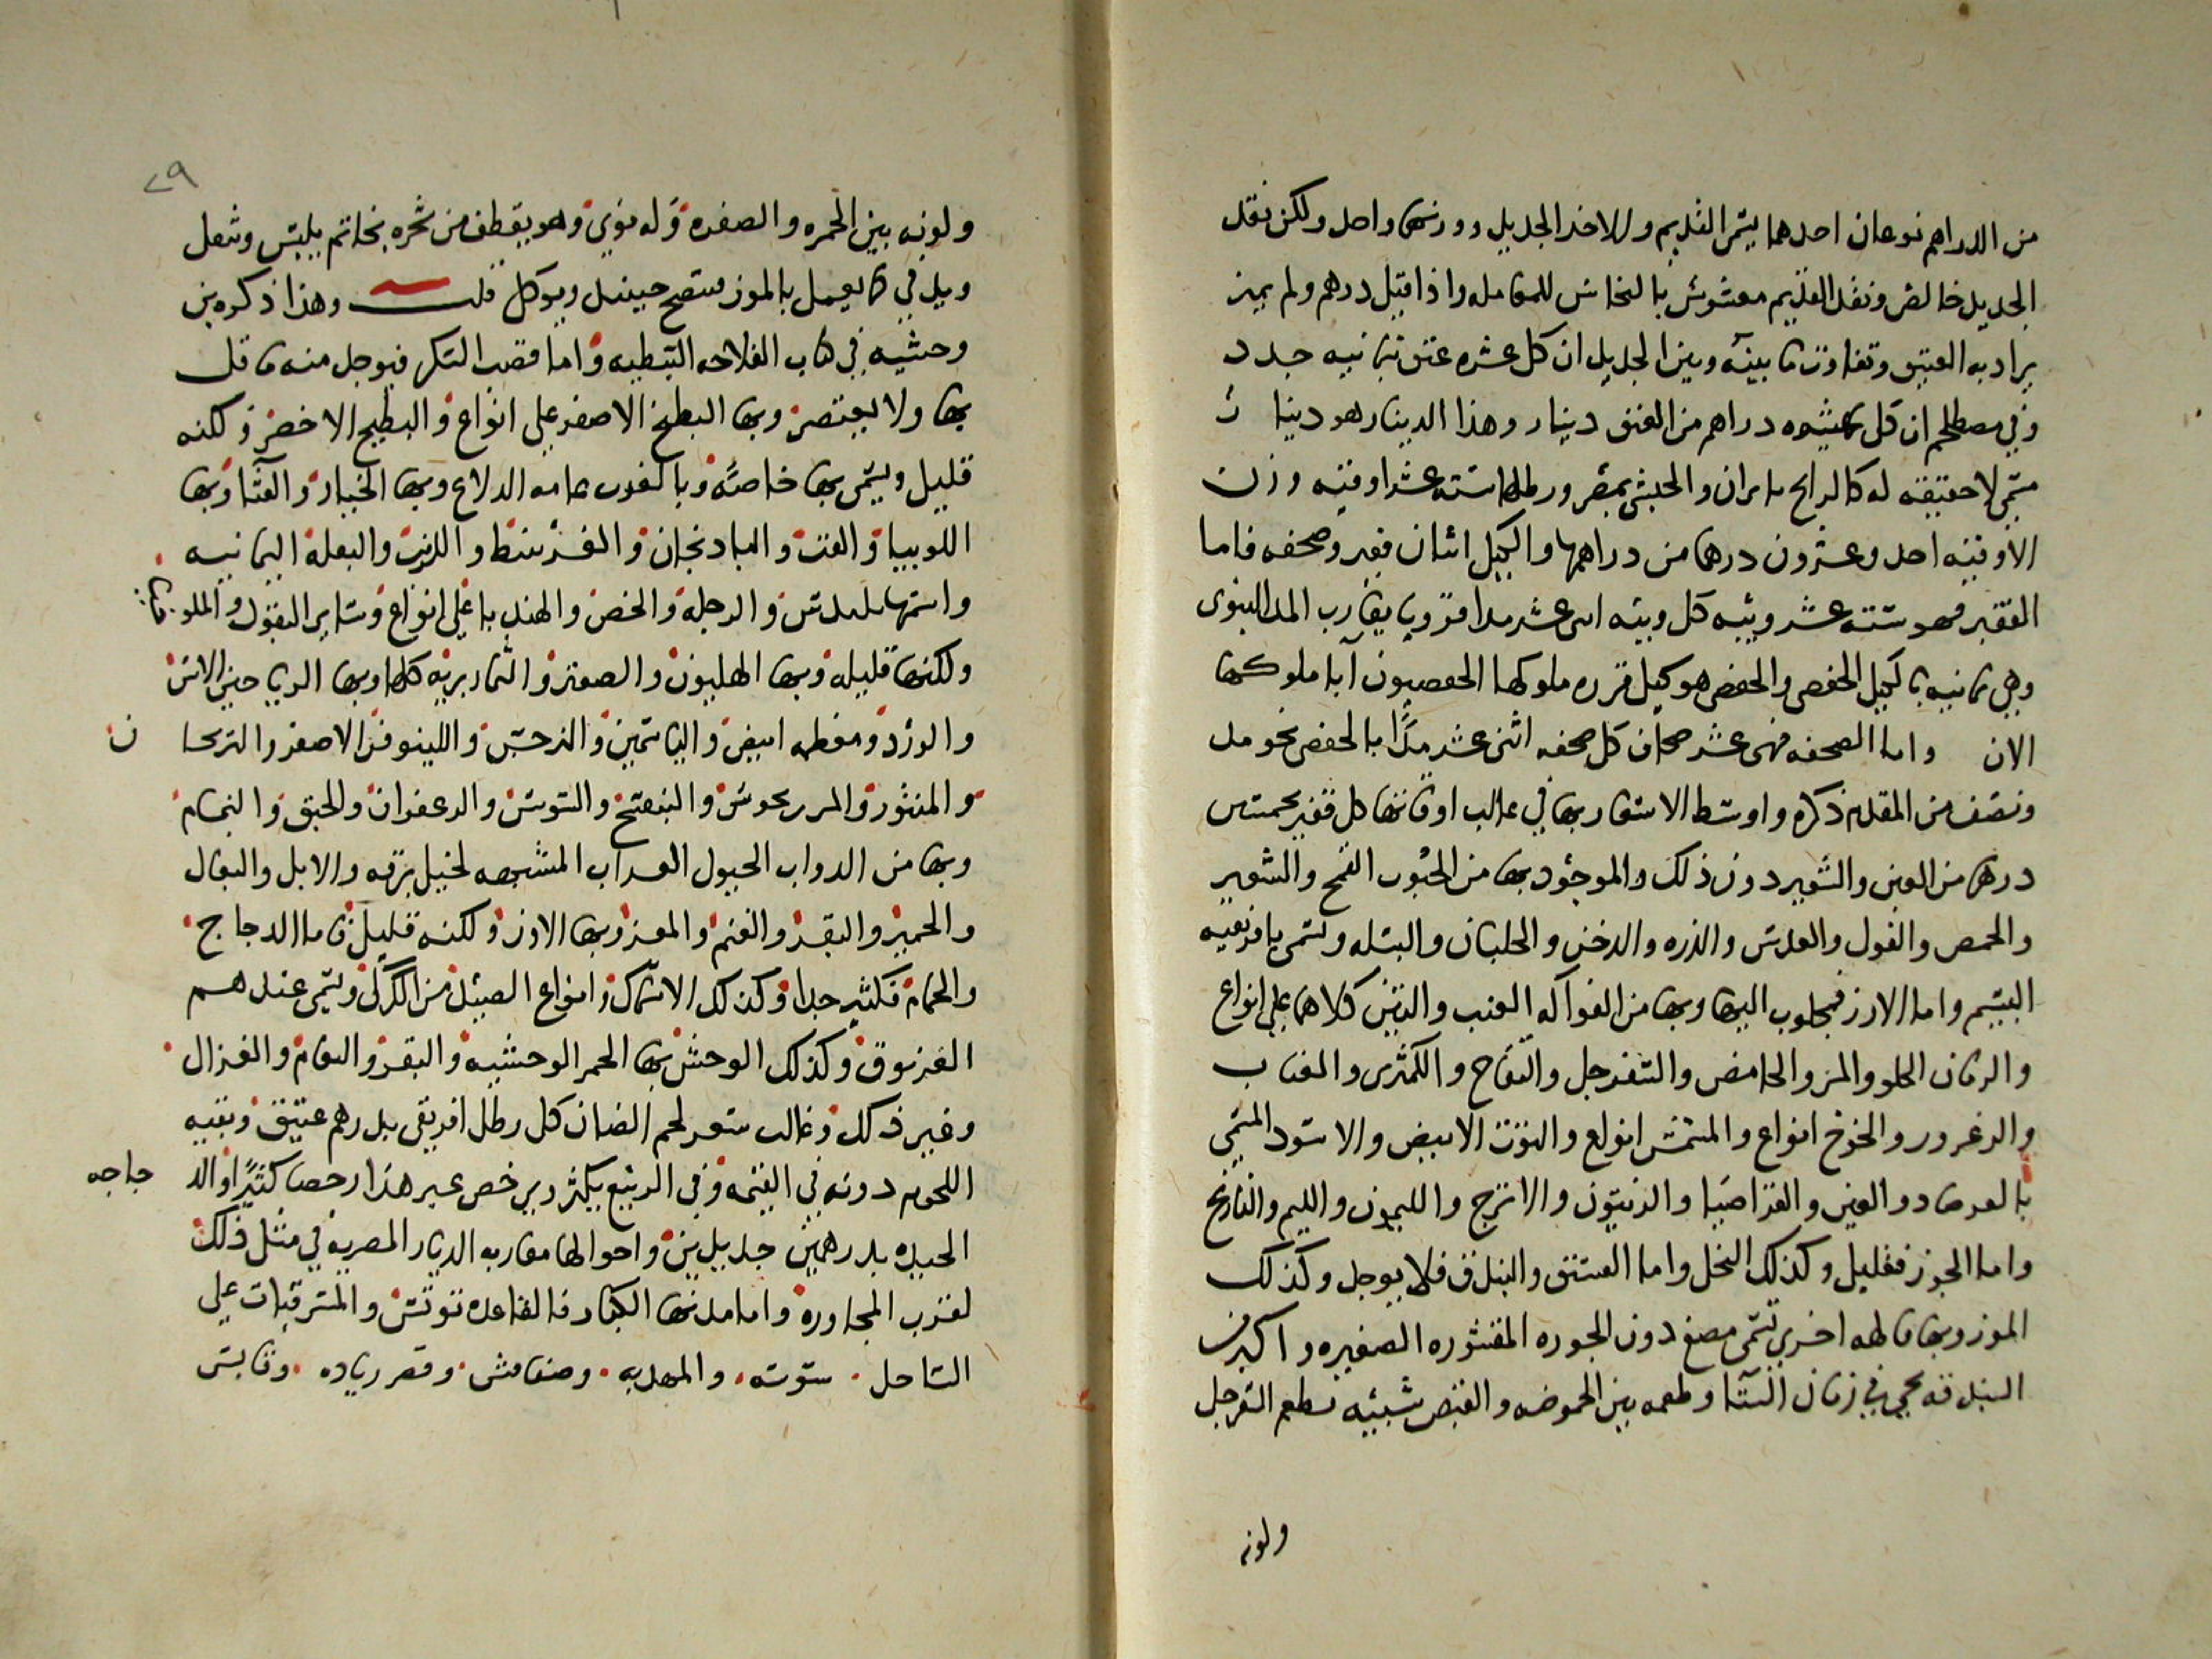 من الدراهم نوعان احدهما يسمى القديم والاخر الجديد ووزنهما واحد ولكن نقد
الجديد خالص ونقد القديم مغشوش بالنحاس للمعامله واذا قيل درهم ولم يميز
يراد به العتيق وتفاوت ما بينه وبين الجديد ان كل عشره عتق بثمانيه جدد
وفي مصطلحهم ان كل عشره دراهم من العتق دينار وهذا الدينار هو دينار
مسمى لا حقيقه له كالرايج بايران والجيشي بمصر ورطلها سته عشر اوقيه وزن
الاوقيه احد وعشرون درهما من دراهمها والكيل اثنان قفيز وصحفه فاما
القفيز فهو سته عشر ويبه كل ويبه اثنى عشر مدا قروي يقارب المد النبوى
وهي ثمانيه بالكيل الحفصي والحفصي هو كيل قرره ملوكها الحفصيون آبا ملوكها
الان واما الصحفه فهى عشر صحاف كل صحفه اثنى عشر مدًا بالحفصي نحو مد
ونصف من المقدم ذكره واوسط الاسعار بها في غالب اوقاتها كل قفيز بخمسين
درهما من العين والشعير دون ذلك والموجود بها من الحبوب القمح والشعير
والحمص والفول والعدس والذره والدخن والجلبان والبسله وتسمى بافريقيه
البسيم واما الارز فمجلوب اليها وبها من الفواكه العنب والتين كلاهما على انواع
والرمان الحلو والمز والحامض والسفرجل والتفاح والكمثرى والعناب
والزعرور والخوخ انواع والمشمش انواع والتوت الابيض والاسود المسمى
بالفرصاد والعين والقراصيا والزيتون والاترج والليمون والليم والنارنج
واما الجوز فقليل وكذلك النخل واما الفستق والبندق فلا يوجد وكذلك
الموز وبها فاكهه اخرى تسمى مصغ دون الجوزه المقشوره الصغيره واكبر من
البندقه يجي في زمان الشتا وطعمه بين الحموضه والقبض شبيه بطعم السفرجل
ولونه
٢٩
ولونه بين الحمره والصفره وله نوي وهو يقطف من شجره بخاتم يلبس وثعل
ويدفي كما يعمل بالموز فينضج حينيد ويوكل قلت وهذا ذكره بن
وحشيه في كتاب الفلاحه النبطيه واما قصب السكر فيوجد منه ما قل
بها ولا يعتصر وبها البطيخ الاصفر على انواع والبطيخ الاخضر ولكنه
قليل ويسمى بها خاصةً وبالغرب عامه الدلاع وبها الخيار والقثا وبها
اللوبيا والفت والبادنجان والقرنبيط والكرنب والبقله اليمانيه
والرجله والخس والهندبا على انواع وساير البقول والملوخيا
ولكنها قليله وبها الهليون والصعتر والثمار بريه كلها وبها الرياحين الاس
والورد ومعظمه ابيض والياسمين والنرجس واللينوفر الاصفر والترنجان
والمنثور والمرزنجوش والبنفسج والسوسن والزعفران والحبق والنمام
وبها من الدواب الخيول العراب المشبهه لخيل برقه والابل والبغال
والحمير والبقر والغنم والمعز وبها الاوز ولكنه قليل فاما الدجاج
والحمام فكثير جدا وكذلك الاسماك وانواع الصيد من الكركي ويسمى عندهم
الغرنوق وكذلك الوحش بها الحمر الوحشيه والبقر والنعام والغزال
وغير ذلك وغالب سعر لحم الضان كل رطل افريقي بدرهم عتيق وبقيه
اللحوم دونه في القيمه وفي الربيع يكثر ويرخص عير هذا رخصا كثيرًا والد جاجه
الجيده بدرهمين جديدين واحوالها مقاربه الديار المصريه في مثل ذلك
لقرب المجاوره واما مدنها الكبار فالقاعده تونس والمشرقيات على
الساحل سوسه والمهديه وصفاقس وقصر زياده وقابس